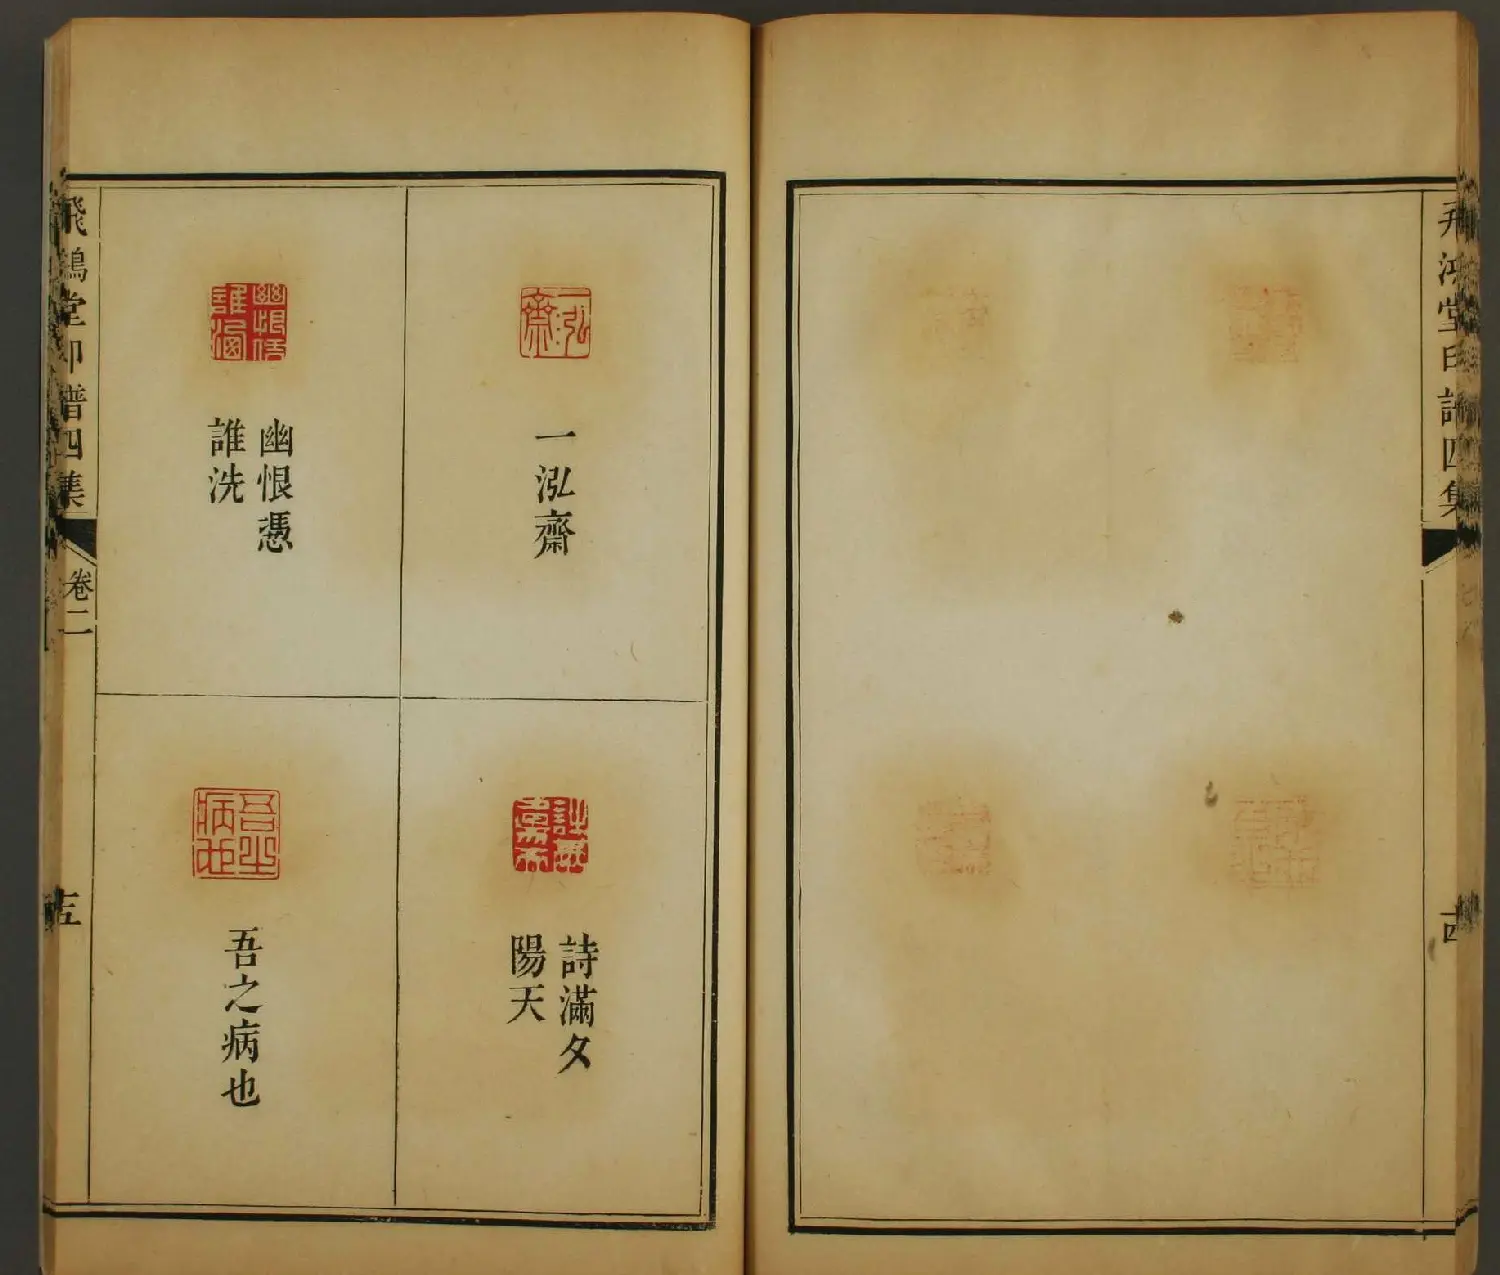 飛鴻堂印譜四集
十四
一泓齋
幽恨憑
誰洗
詩滿夕
陽天
吾之病也
飛鴻堂印譜四集
卷二